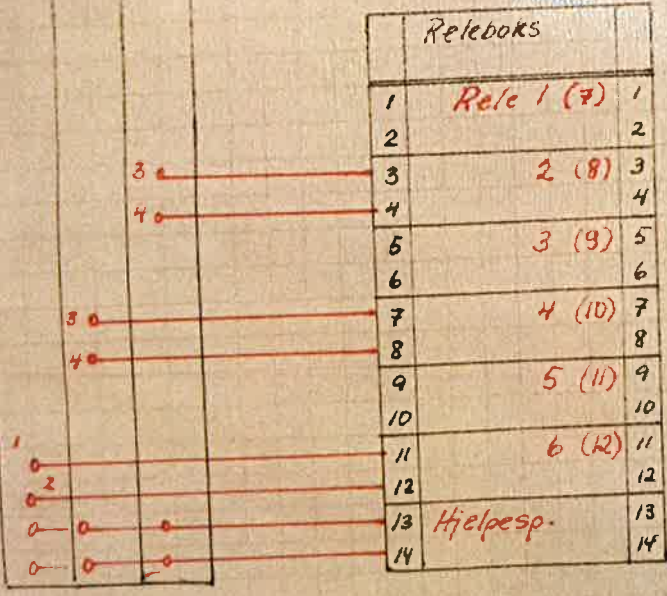 Releboks
1 Rele 1 (7) 1
2 2
3 3 2 (8) 3
4 4 4
5 3 (9) 5
6 6
3 7 4 (10) 7
4 8 8
9 5 (11) 9
10 10
1 11 6 (12) 11
2 12 12
13 Hjelpesp. 13
14 14